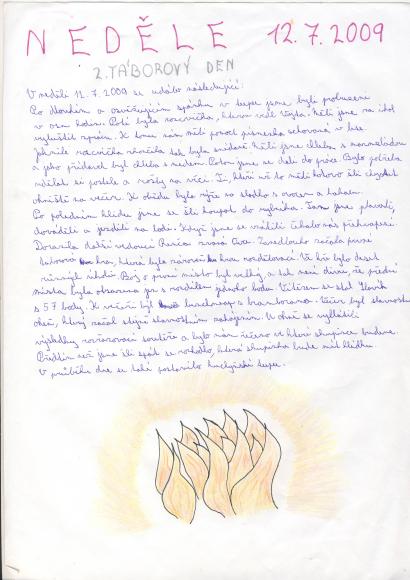 NEDĚLE 12.7.2009
2. TÁBOROVÝ DEN
V neděli 12.7.2009 se událo následující:
Po dlouhém a osvěžujícím spánku v teepee jsme byli probuzeni
v osm hodin. Poté byla rozcvička, kterou vedl Vojta. Měli jsme za úkol
vyluštit zprávu. K tomu nám měla pomoct písmenka schovaná v lese.
Jakmile rozcvička skončila tak byla snídaně. Měli jsme chleba s marmeládou
a jako přídavek byl chleba s medem. Potom jsme se dali do práce. Bylo potřeba
udělat si postele a rošty na věci. Ti, kteří už to měli hotovo šli chystat
ohniště na večer. K obědu byla rýže na sladko s ovocem a kakaem.
Po poledním klidu jsme se šli koupat do rybníka. Tam jsme plavali,
dováděli a jezdili na lodi. Když jsme se vrátili čekalo nás překvapení.
Dorazila další vedoucí Renča zvaná Ova. Zanedlouho začala první
táborová hra, která byla zároveň hrou rozdělovací. Ve hře bylo deset
různých úkolů. Boj o první místo byl veliký a tak není divu, že přední
místa byla obsazena jen s rozdílem jednoho bodu. Vítězem se stal
s 57 body. K večeři byl s bramborama. Večer byl slavnostní
oheň, který začal stejně slavnostním zahájením. U ohně se vyhlásili
výsledky rozřazovací soutěže a bylo nám řečeno ve které skupince budeme.
Předtím než jsme šli spát se rozhodlo, která skupinka bude mít hlídku.
V průběhu dne se také postavilo kuchyňské teepee.